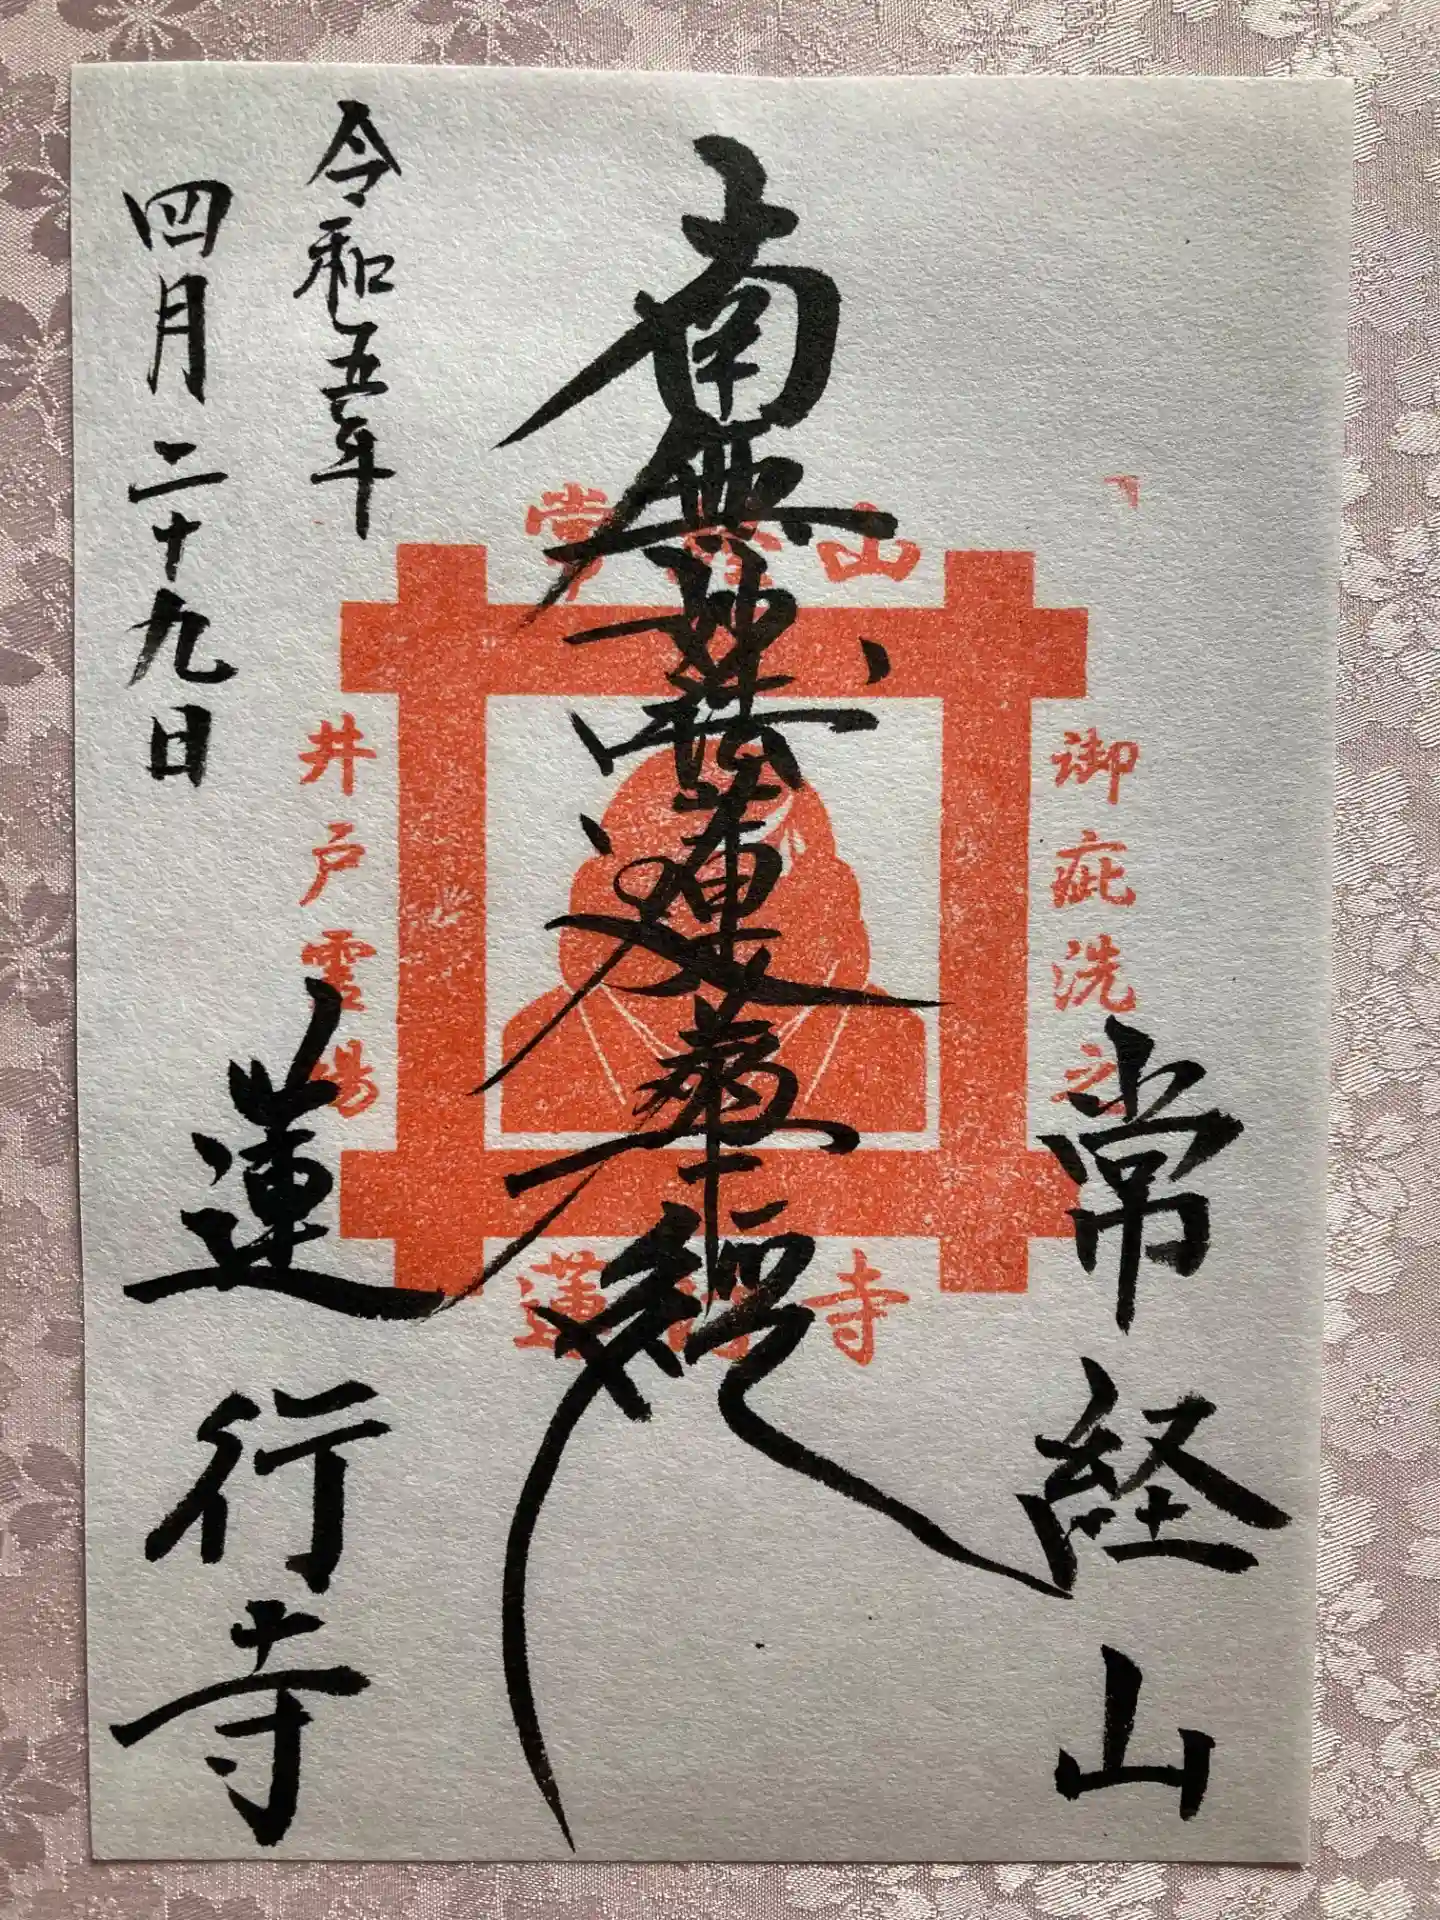 常経山
南無妙法蓮華経
令和五年
四月二十九日
蓮行寺
常経山
御疵洗之
井戸霊場
蓮行寺